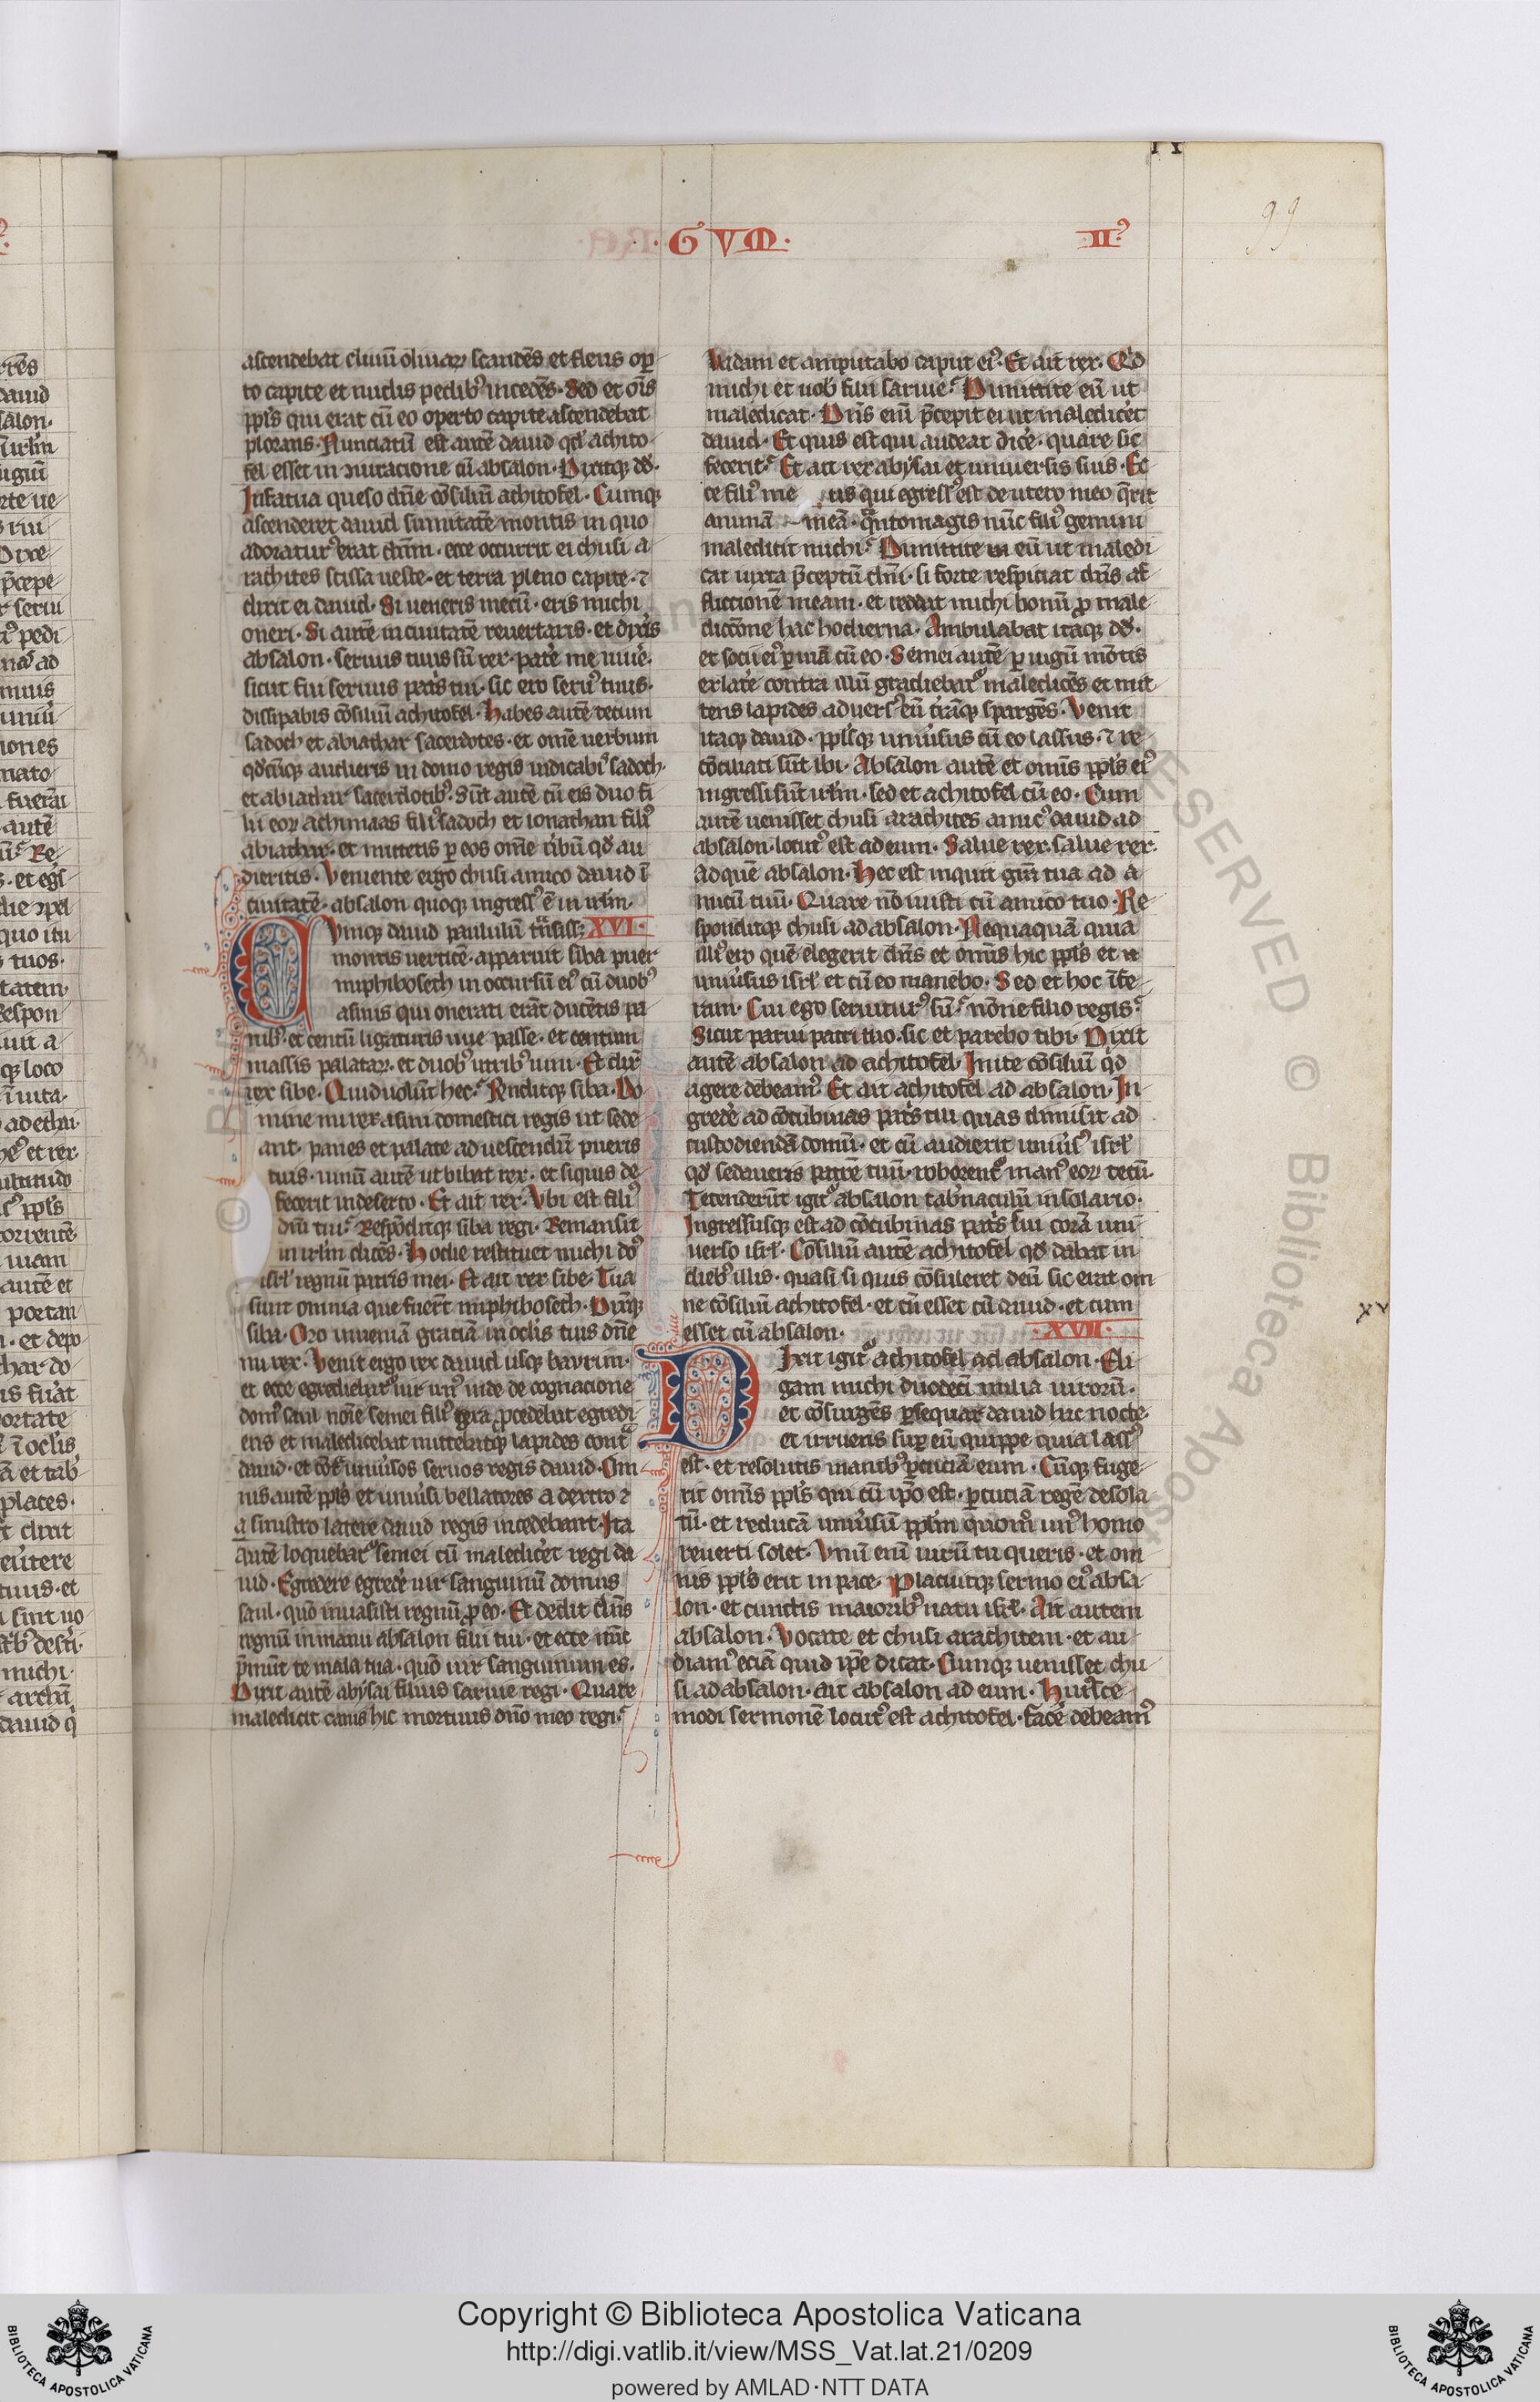 · G V M ·
II
99
ascendebat cliuū oliuaꝝ scandēs et flens op̄
to capite et nudis pedibꝰ incedēs · Sed et oīs
ppl̄s qui erat cū eo operto capite ascendebat
plorans · Nunciatū est autē dauid qd̓ achito
fel esset in iuracione cū absalon · Dixitqꝫ dd̓ ·
Infatua queso dn̄e cōsiliū achitofel · Cumqꝫ
ascenderet dauid sumitatē montis in quo
adoraturꝰ erat dn̄m · ecce occurrit ei chusi a
rachites scissa ueste · et terra pleno capite · ⁊
dixit ei dauid · Si ueneris mecū · eris michi
oneri · Si autē in ciuitatē reuertaris · et dix̓is
absalon · seruus tuus sū rex · pate̓ me uiue̓ ·
sicut fui seruus pat̓s tui · sic ero seruꝰ tuus ·
dissipabis cōsiliū achitofel · Habes autē tecum
sadoch et abiathar sacerdotes · et om̄e uerbum
qd̓cūqꝫ audieris in domo regis indicabiꝰ sadoch ·
et abiathar sacerdotibꝰ · Sūt autē cū eis duo fi
lii eoꝝ achimaas filiꝰ sadoch et ionathan filiꝰ
abiathar · et mittetis ꝑ eos om̄e u̓bū qd̓ au
dieritis · Veniente ergo chusi amico dauid ī
ciuitatē · absalon quoqꝫ ingressꝰ ē in irl̄m ·
Cvmqꝫ dauid paululū trāsissꝫ XVI ·
montis uerticē · apparuit siba puer
miphiboseth in occursū eiꝰ cū duobꝰ
asinis qui onerati erāt ducētis pa
nibꝰ · et centū ligaturis uue passe · et centum
massis palataꝝ · et duobꝰ utribꝰ uini · Et dix̄
rex sibe · Quid uolūt hec · Rn̄ditqꝫ siba · Do
mine mi rex asini domestici regis ut sede
ant · panes et palate ad uescendū pueris
tuis · uinū autē ut bibat rex · et siquis de
fecerit in deserto · Et ait rex · Vbi est filiꝰ
dn̄i tui · Respōditqꝫ siba regi · Remansit
in irl̄m dicēs · Hodie restituet michi doꝰ
isrl̓ regnū patris mei · Et ait rex sibe · Tua
sunt omnia que fuer̄t miphiboseth · Dix̓qꝫ
siba · Oro inueniā gratiā in oclis tuis dn̄e
mi rex · Venit ergo rex dauid usqꝫ baurim ·
et ecce egrediebat᷑ uir unꝰ inde de cognacione
domꝰ saul noīe semei filiꝰ gera ꝓcedebat egredi
ens et maledicebat mittebatqꝫ lapides contᵃ
dauid · et cōt̄ uniu̓sos seruos regis dauid · Om
nis autē ppl̄s et uniu̓si bellatores a dextro ⁊
a sinistro latere dauid regis incedebant · Ita
autē loquebat᷑ semei cū maledice̓t regi da
uid · Egredere egrede̓ uir sanguinū domus
saul · quō inuasisti regnū ꝓ eo · Et dedit dn̄s
regnū in manu absalon filii tui · et ecce nūc
p̄mūt te mala tua · quō uir sanguinum es ·
Dixit autē abysai filius saruie regi · Quare
maledicit canis hic mortuus dn̄o meo regi ·
Vadam et amputabo caput eiꝰ · Et ait rex · Qd̓
michi et uob̓ filii saruie · Dimittite eū ut
maledicat · Dn̄s eni̅ p̄cepit ei ut maledice̓t
dauid · Et quis est qui audeat dice̓ · quare sic
fecerit · Et ait rex abysai et uniuersis suis · Ec
ce filiꝰ me us qui egressꝰ est de utero meo q̄rit
animā meā · qᵃntomagis nūc filiꝰ gemini
maledicit michi · Dimittite eū ut maledi
cat iuxta p̄ceptū dn̄i · si forte respiciat dn̄s af
flictionē meam · et reddat michi bonū ꝓ male
dictione hac hodierna · Ambulabat itaqꝫ dd̓ ·
et socii eiꝰ ꝑ uiā cū eo · Semei autē ꝑ iugū mōtis
ex late̓ contra illū gradiebat᷑ maledicēs et mit
tens lapides aduersꝰ eū t̓rāqꝫ spargēs · Venit
itaqꝫ dauid · ppl̄sqꝫ uniu̓sus cū eo lassus · ⁊ re
cōciliati sūt ibi · Absalon autē et omīs ppl̄s eiꝰ
ingressi sūt irl̄m · sed et achitofel cū eo · Cum
autē uenisset chusi arachites amicꝰ dauid ad
absalon · locutꝰ est ad eum · Salue rex · salue rex ·
Ad quē absalon · Hec est inquit gr̄a tua ad a
micū tuū · Quare nō iuisti cū amico tuo · Re
sponditqꝫ chusi ad absalon · Nequaquā quia
illiꝰ ero quē elegerit dn̄s et omīs hic ppl̄s et
uniu̓sus isrl̓ et cū eo manebo · Sed et hoc īfe
ram · Cui ego seruiturꝰ sū · nōne filio regis ·
Sicut parui patri tuo · sic et parebo tibi · Dixit
autē absalon ad achitofel · Inite cōsiliū q̓d
agere debeamꝰ · Et ait achitofel ad absalon · In
grede̓ ad cōcubinas pat̓s tui quas dimisit ad
custodiendā domū · et cū audierit uniu̓sꝰ isrl̓
qd̓ fedaueris patrē tuū · roborent᷑ manꝰ eoꝝ tecū ·
Tetenderūt igit᷑ absalon tab̓naculū in solario ·
Ingressusqꝫ est ad cōcubinas pat̓s sui corā uni
uerso isrl̓ · Cōsiliū autē achitofel qd̓ dabat in
diebꝰ illis · quasi si quis cōsuleret deū sic erat om
ne cōsiliū achitofel · et cū esset cū dauid · et cum
esset cū absalon · XVII ·
Dixit igit᷑ achitofel ad absalon · Eli
gam michi duodecī milia uirorū ·
et cōsurgēs ꝑsequar dauid hac nocte ·
et irruens suꝑ eū quippe quia lassꝰ
est · et resolutis manibꝰ ꝑcutiā eum · Cūqꝫ fuge
rit omīs ppl̄s qui cū ip̄o est · ꝑcutiā regē desola
tū · et reducā uniu̓sū ppl̄m quom̄ unꝰ homo
reuerti solet · Vnū eni̅ uirū tu queris · et om
nis ppl̄s erit in pace · Placuitqꝫ sermo eiꝰ absa
lon · et cunctis maioribꝰ natu isrl̓ · Ait autem
absalon · Vocate et chusi arachitem · et au
diamꝰ eciā quid ip̄e dicat · Cumqꝫ uenisset chu
si ad absalon · ait absalon ad eum · Huiꝰce
modi sermonē locutꝰ est achitofel · face̓ debeamꝰ
Copyright © Biblioteca Apostolica Vaticana
http://digi.vatlib.it/view/MSS_Vat.lat.21/0209
powered by AMLAD·NTT DATA
BIBLIOTECA APOSTOLICA VATICANA
BIBLIOTECA APOSTOLICA VATICANA